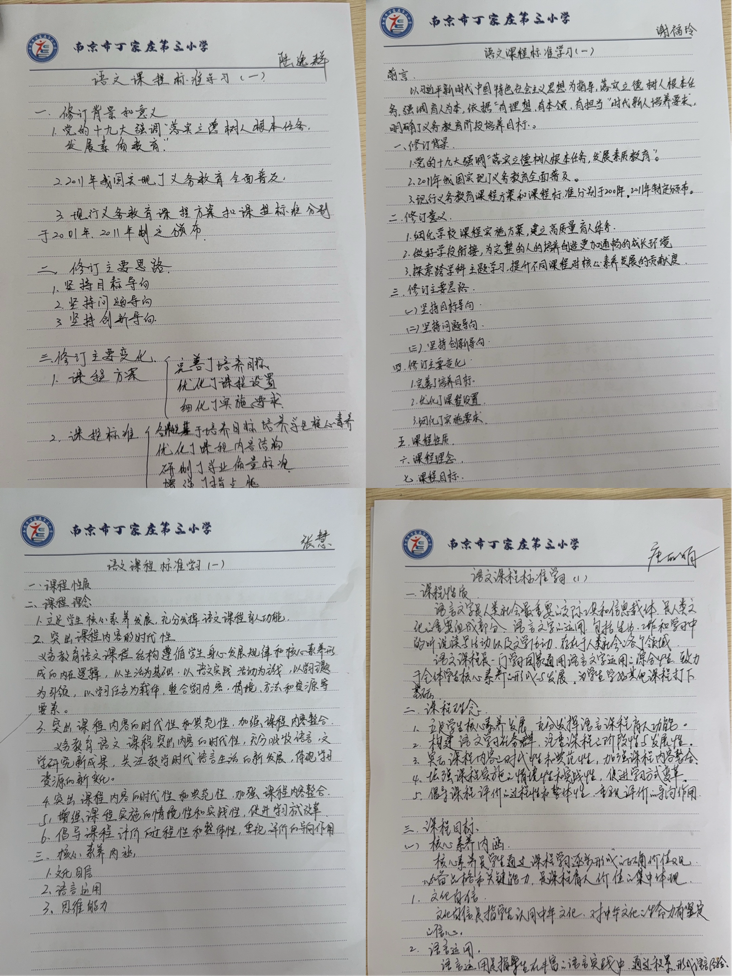 南京市丁家庄第三小学
语文课程标准学习(一)
一、修订背景和意义
1.党的十九大强调"落实立德树人根本任务,
发展素质教育"
2.2011年我国实现了义务教育全面普及.
3.现行义务教育课程方案和课程标准分别
于2001年、2011年制定颁布.
二、修订主要思路.
1.坚持目标导向
2.坚持问题导向
3.坚持创新导向.
三、修订主要变化.
1.课程方案
完善了培养目标.
优化了课程设置
细化了实施要求.
2.课程标准
培养目标 培养学生核心素养
优化了课程内容结构
研制了学业质量标准
南京市丁家庄第三小学
语文课程标准学习(一)
前言.
以习近平新时代中国特色社会主义思想为指导,落实立德树人根本任
务,强调育人为本,依据"有理想,有本领,有担当"时代新人培养要求,
明确了义务教育阶段培养目标.
一、修订背景.
1.党的十九大强调"落实立德树人根本任务,发展素质教育".
2.2011年我国实现了义务教育全面普及.
3.现行义务教育课程方案和课程标准分别于2001年,2011年制定颁布.
二.修订意义.
1.细化学校课程实施方案,建立高质量育人体系.
2.做好学段衔接,为完整的人的培养创造更加通畅的成长环境
3.探索跨学科主题学习,提升不同课程对核心素养发展的贡献度.
三、修订主要思路.
(一)坚持目标导向.
(二)坚持问题导向.
(三).坚持创新导向.
四.修订主要变化.
1.完善了培养目标.
2.优化了课程设置.
3.细化了实施要求.
五.课程性质.
六、课程理念.
七.课程目标.
南京市丁家庄第三小学
张慧
语文课程标准学习(一)
一.课程性质
二、课程理念
1.立足学生核心素养发展,充分发挥语文课程育人功能.
2.突出课程内容的时代性
义务教育语文课程结构遵循学生身心发展规律和核心素养形
成的内在逻辑,以生活为基础,以语文实践活动为主线,以学习主题
为引领,以学习任务为载体,整合学习内容、情境、方法和资源等
要素.
3.突出课程内容的时代性和典范性,加强课程内容整合.
义务教育语文课程突出内容的时代性,充分吸收语言、文
学研究新成果,关注数字时代语言生活的新发展,体现学习
资源的新变化.
4.突出课程内容的时代性和典范性,加强课程内容整合.
5.增强课程实施的情境性和实践性,促进学习方式改革
6.倡导课程评价的过程性和整体性,重视评价的导向作用
三、核心素养内涵
1.文化自信
2.语言运用
3、思维能力
南京市丁家庄第三小学
语文课程标准学习(1)
一.课程性质
语言文字是人类社会最重要的交际工具和信息载体,是人类文
化的重要组成部分.语言文字的运用,包括生活、工作和学习中
的听说读写活动以及文学活动,存在于人类社会的各个领域.
语文课程是一门学习国家通用语言文字运用的综合性、
于全体学生核心素养的形成与发展,为学生学好其他课程打下
基础.
二.课程理念
1.立足学生核心素养发展,充分发挥语言课程育人功能.
2.构建语文学习任务群,注重课程的阶段性与发展性.
3.突出课程内容的时代性和典范性,加强课程内容整合.
4.增强课程实施的情境性和实践性,促进学习方式变革.
5.倡导课程评价的过程性和整体性,重视评价的导向作用.
三.课程目标.
(一)核心素养内涵
核心素养是学生通过课程学习逐步形成的正确价值观、
必备品格和关键能力,是课程育人价值的集中体现.
1.文化自信
文化自信是指学生认同中华文化,对中华文化的生命力有坚定
的信心.
2.语言运用.
语言运用是指学生在丰富的语言实践中,通过积累、形成语言经验.